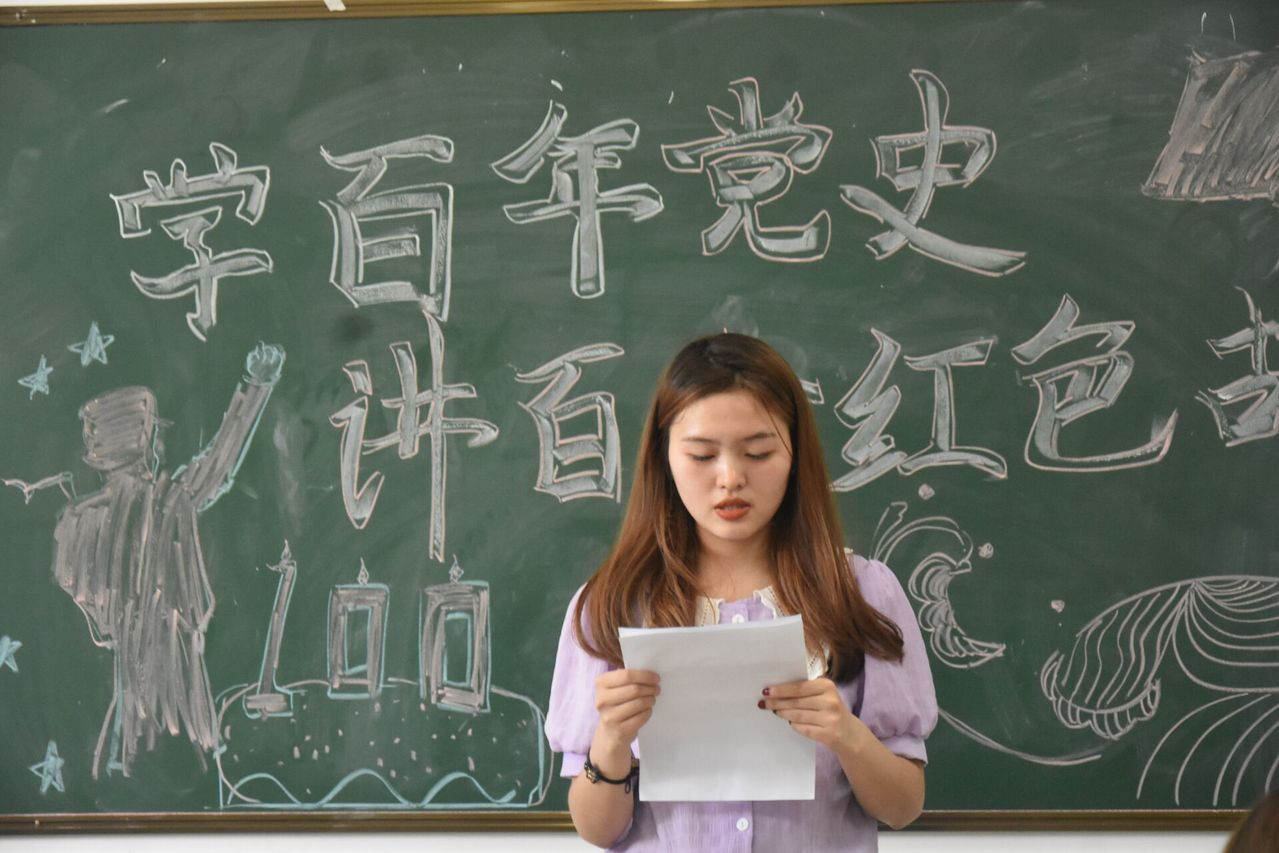 学百年党史
讲百红色
100